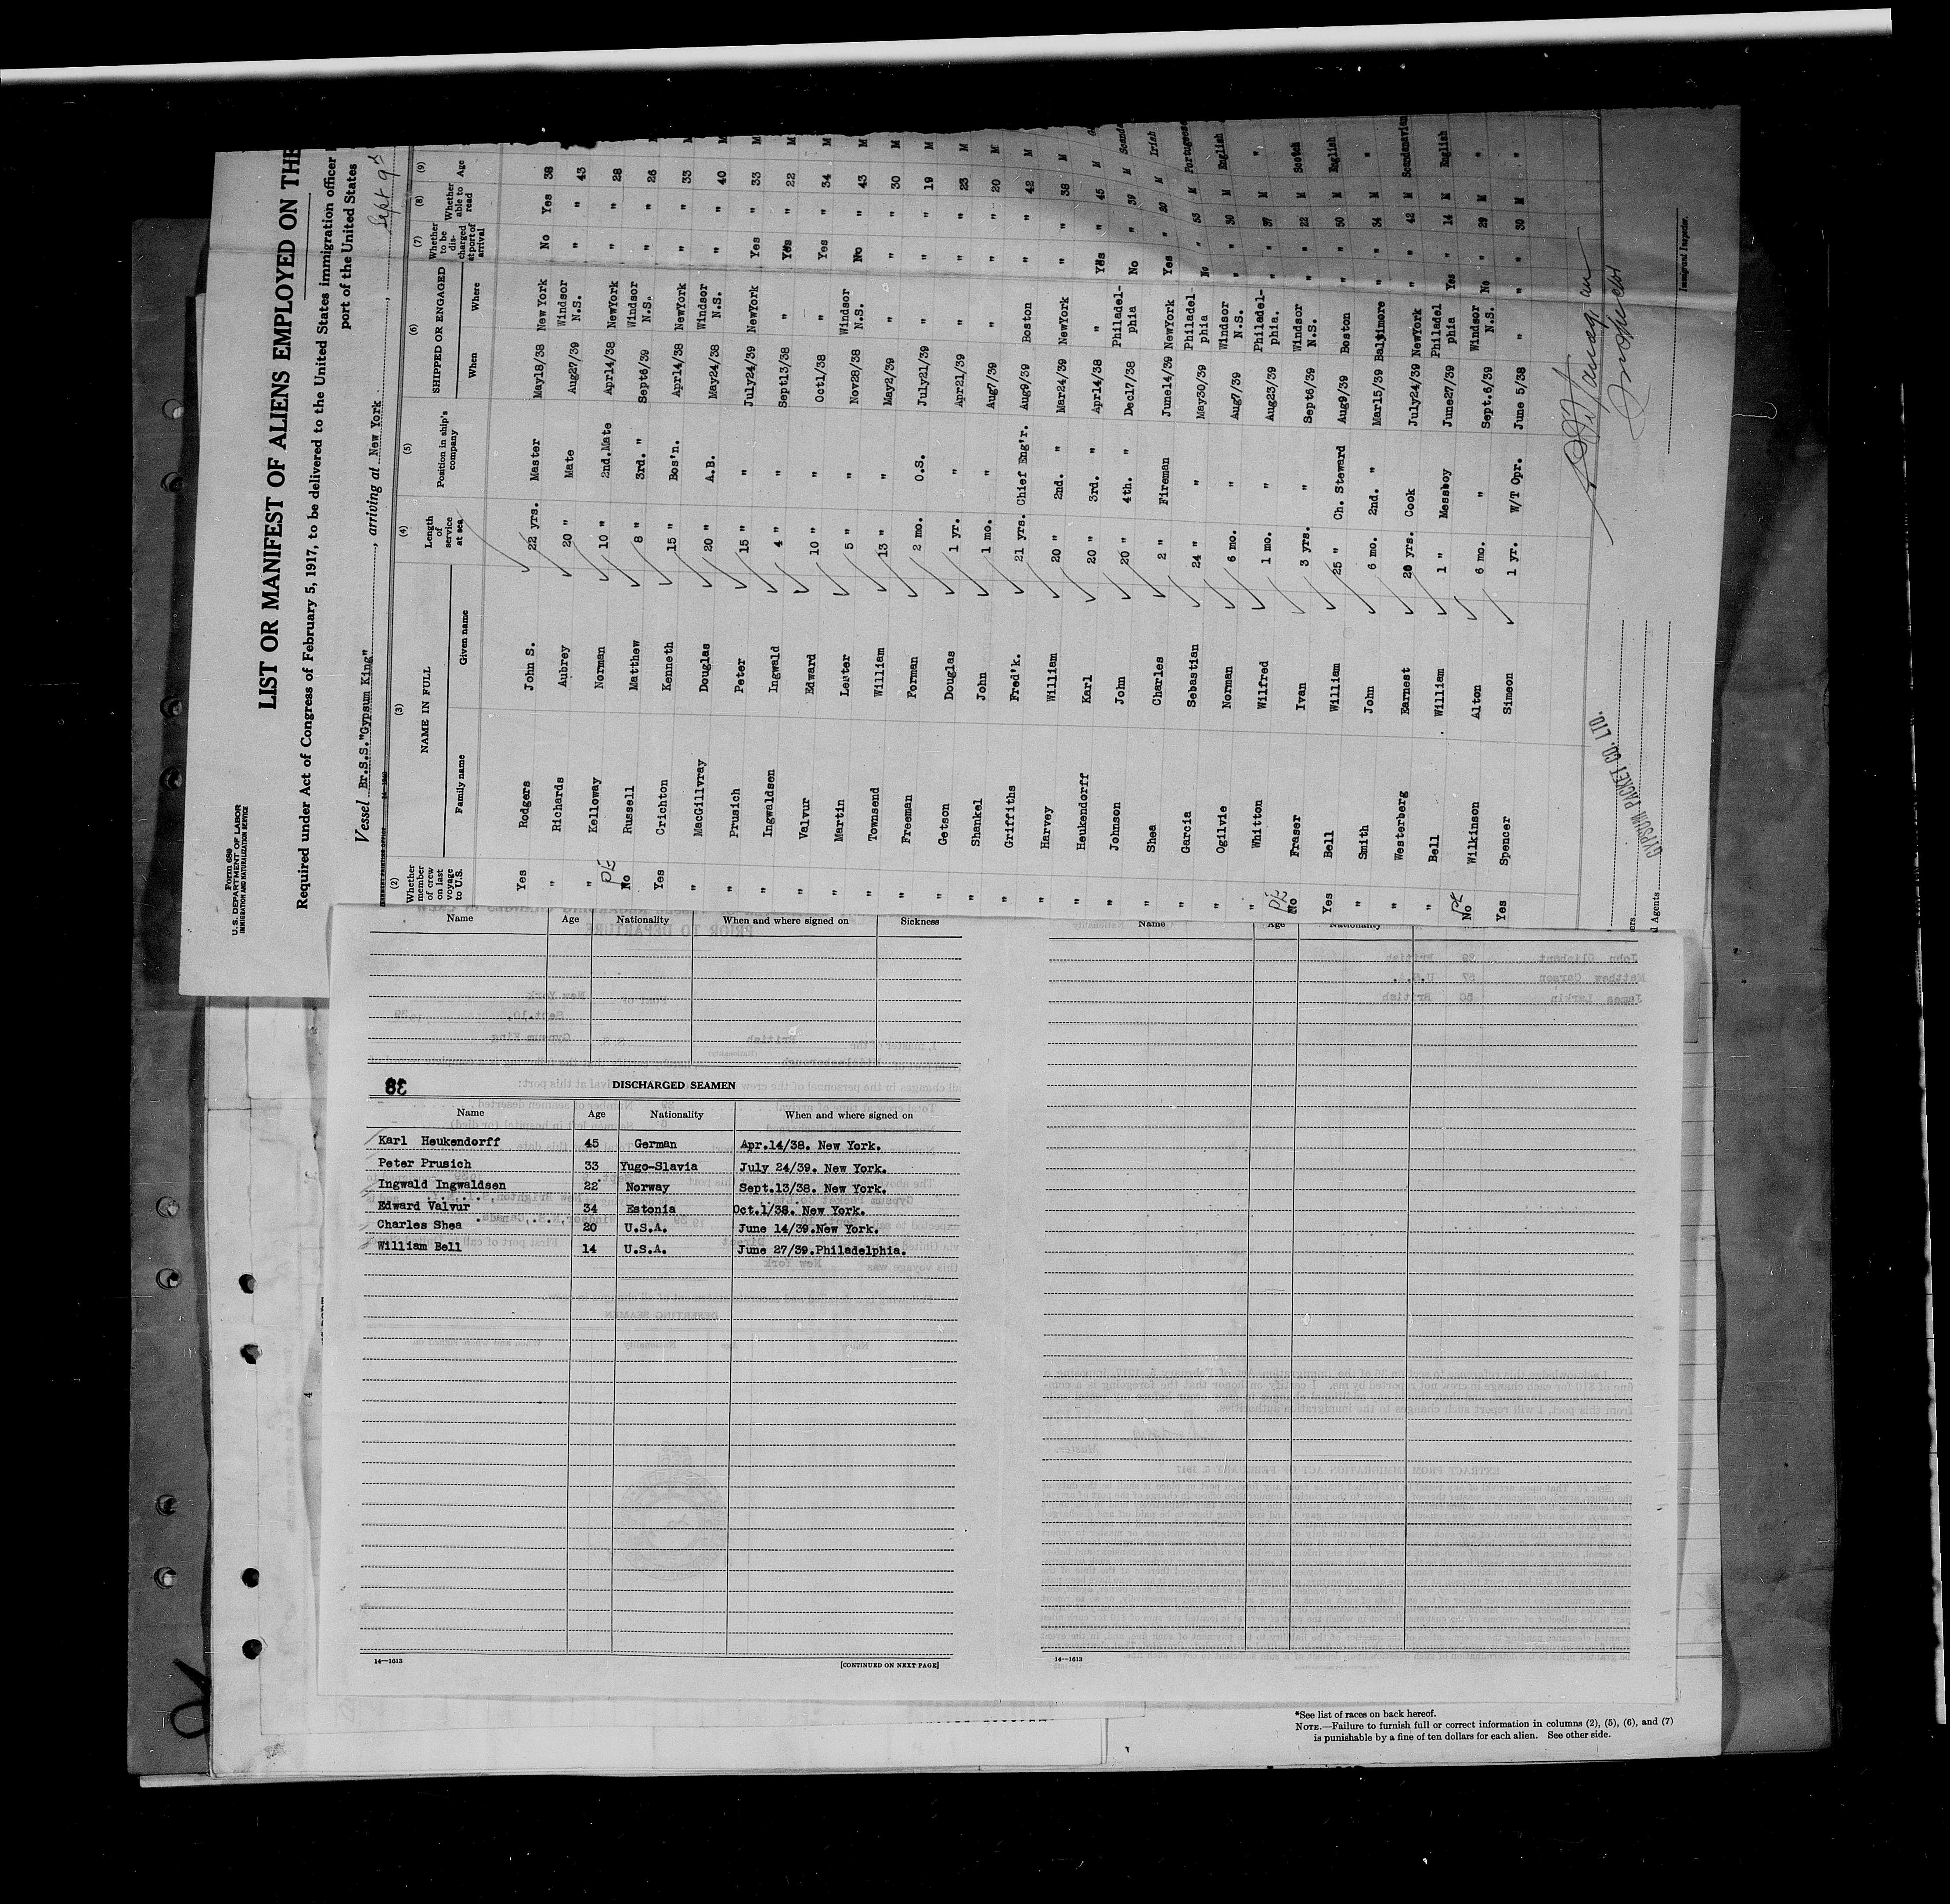 Form 689
U. S. DEPARTMENT OF LABOR
IMMIGRATION AND NATURALIZATION SERVICE
LIST OR MANIFEST OF ALIENS EMPLOYED ON THE
Required under Act of Congress of February 5, 1917, to be delivered to the United States immigration officer
port of the United States
Vessel Br.S.S."Gypsum King", arriving at New York, Sept 9
(2) (3) (4) (5) (6) (7) (8) (9)
Whether member of crew on last voyage to U.S. NAME IN FULL Length of service at sea Position in ship's company SHIPPED OR ENGAGED Whether to be discharged at port of arrival Whether able to read Age
Family name Given name When Where
Yes Rodgers John S. 22 yrs. Master May18/38 New York No Yes 38
" Richards Aubrey 20 " Mate Aug27/39 Windsor N.S. " " 43
" Kelloway Norman 10 " 2nd.Mate Apr14/38 NewYork " " 28
PE No Russell Matthew 8 " 3rd. " Sept6/39 Windsor N.S. " " 26
Yes Crichton Kenneth 15 " Bos'n. Apr14/38 NewYork " " 33 M
" MacGillvray Douglas 20 " A.B. May24/38 Windsor N.S. " " 40 M
" Prusich Peter 15 " " July24/39 NewYork Yes " 33 M
" Ingwaldsen Ingwald 4 " " Sept13/38 " Yes " 22 M
" Valvur Edward 10 " " Oct1/38 " Yes " 34 M
" Martin Lester 5 " " Nov28/38 Windsor N.S. No " 43 M
" Townsend William 13 " " May2/39 " " " 30 M
" Freeman Forman 2 mo. O.S. July21/39 " " " 19 M
" Getson Douglas 1 yr. " Apr21/39 " " " 23 M
" Shankel John 1 mo. " Aug7/39 " " " 20 M
" Griffiths Fred'k. 21 yrs. Chief Eng'r. Aug9/39 Boston " " 42 M
" Harvey William 20 " 2nd. " Mar24/39 NewYork " " 38 M
" Heukendorff Karl 20 " 3rd. " Apr14/38 " Yes " 45 M
" Johnson John 20 " 4th. " Dec17/38 Philadelphia No " 39 M
" Shea Charles 2 " Fireman June14/39 NewYork Yes " 20 M Irish
" Garcia Sebastian 24 " " May30/39 Philadelphia No " 53 M Portuguese
" Ogilvie Norman 6 mo. " Aug7/39 Windsor N.S. " " 30 M English
" Whitton Wilfred 1 mo. " Aug23/39 Philadelphia. " " 37 M "
PE No Fraser Ivan 3 yrs. " Sept6/39 Windsor N.S. " " 22 M Scotch
Yes Bell William 25 " Ch. Steward Aug9/39 Boston " " 50 M English
" Smith John 6 mo. 2nd. " Mar15/39 Baltimore " " 34 M "
" Westerberg Earnest 20 yrs. Cook July24/39 NewYork " " 42 M Scandanavian
" Bell William 1 " Messboy June27/39 Philadelphia Yes " 14 M English
PE No Wilkinson Alton 6 mo. " Sept.6/39 Windsor N.S. No " 29 M "
Yes Spencer Simeon 1 yr. W/T Opr. June 5/38 " " " 30 M "
GYPSUM PACKET CO. LTD.
GYPSUM PACKET CO. LTD.
Agents
Inspector
Immigrant Inspector.
Name Age Nationality When and where signed on Sickness
38
DISCHARGED SEAMEN
Name Age Nationality When and where signed on
Karl Heukendorff 45 German Apr.14/38. New York.
Peter Prusich 33 Yugo-Slavia July 24/39. New York.
Ingwald Ingwaldsen 22 Norway Sept.13/38. New York.
Edward Valvur 34 Estonia Oct.1/38. New York.
Charles Shea 20 U.S.A. June 14/39.New York.
William Bell 14 U.S.A. June 27/39.Philadelphia.
14—1613
[CONTINUED ON NEXT PAGE]
Name Age Nationality
14—1613
*See list of races on back hereof.
NOTE.—Failure to furnish full or correct information in columns (2), (5), (6), and (7)
is punishable by a fine of ten dollars for each alien. See other side.